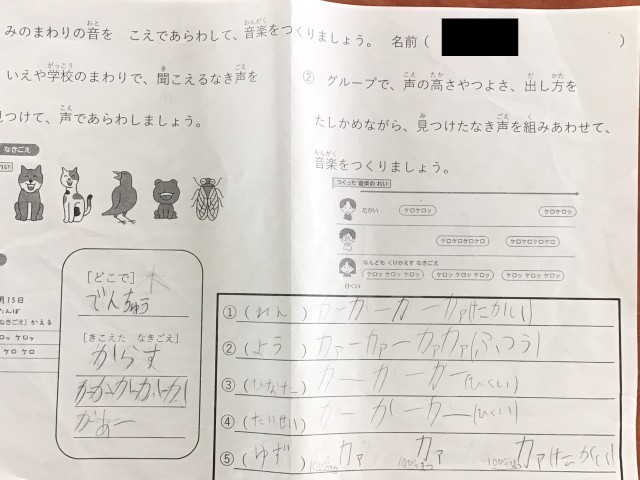 みのまわりの音を　こえであらわして、音楽をつくりましょう。　名前（　　　）
おと
おんがく
いえや学校のまわりで、聞こえるなき声を
がっこう
き
ごえ
見つけて、声であらわしましょう。
こえ
なきごえ
れい
[どこで]
木
でんちゅう
[きこえた　なきごえ]
からす
かあー
月15日
たんぼ
なきごえ）かえる
ロッ ケロッ
ケロ ケロ
② グループで、声の高さやつよさ、出し方を
こえ　たか　だ　かた
たしかめながら、見つけたなき声を組みあわせて、
み　ごえ　く
音楽をつくりましょう。
おんがく
つくった 音楽の れい
たかい
ケロケロッ
ケロケロッ
ケロケロケロケロ
ケロケロケロケロ
なんども くりかえす なきごえ
ケロッ ケロッ ケロッ
ケロッ ケロッ ケロッ
ケロッ ケロッ ケロッ
ひくい
①（れん）カーカーカーカァ(たかい)
②（よう）カァーカァーカァカァ(ふつう)
③（ひなた）カーカーカー(ひくい)
④（たいせい）カーカーカー(ひくい)
⑤（ゆず）カァ　カァ　カァ(たかい)